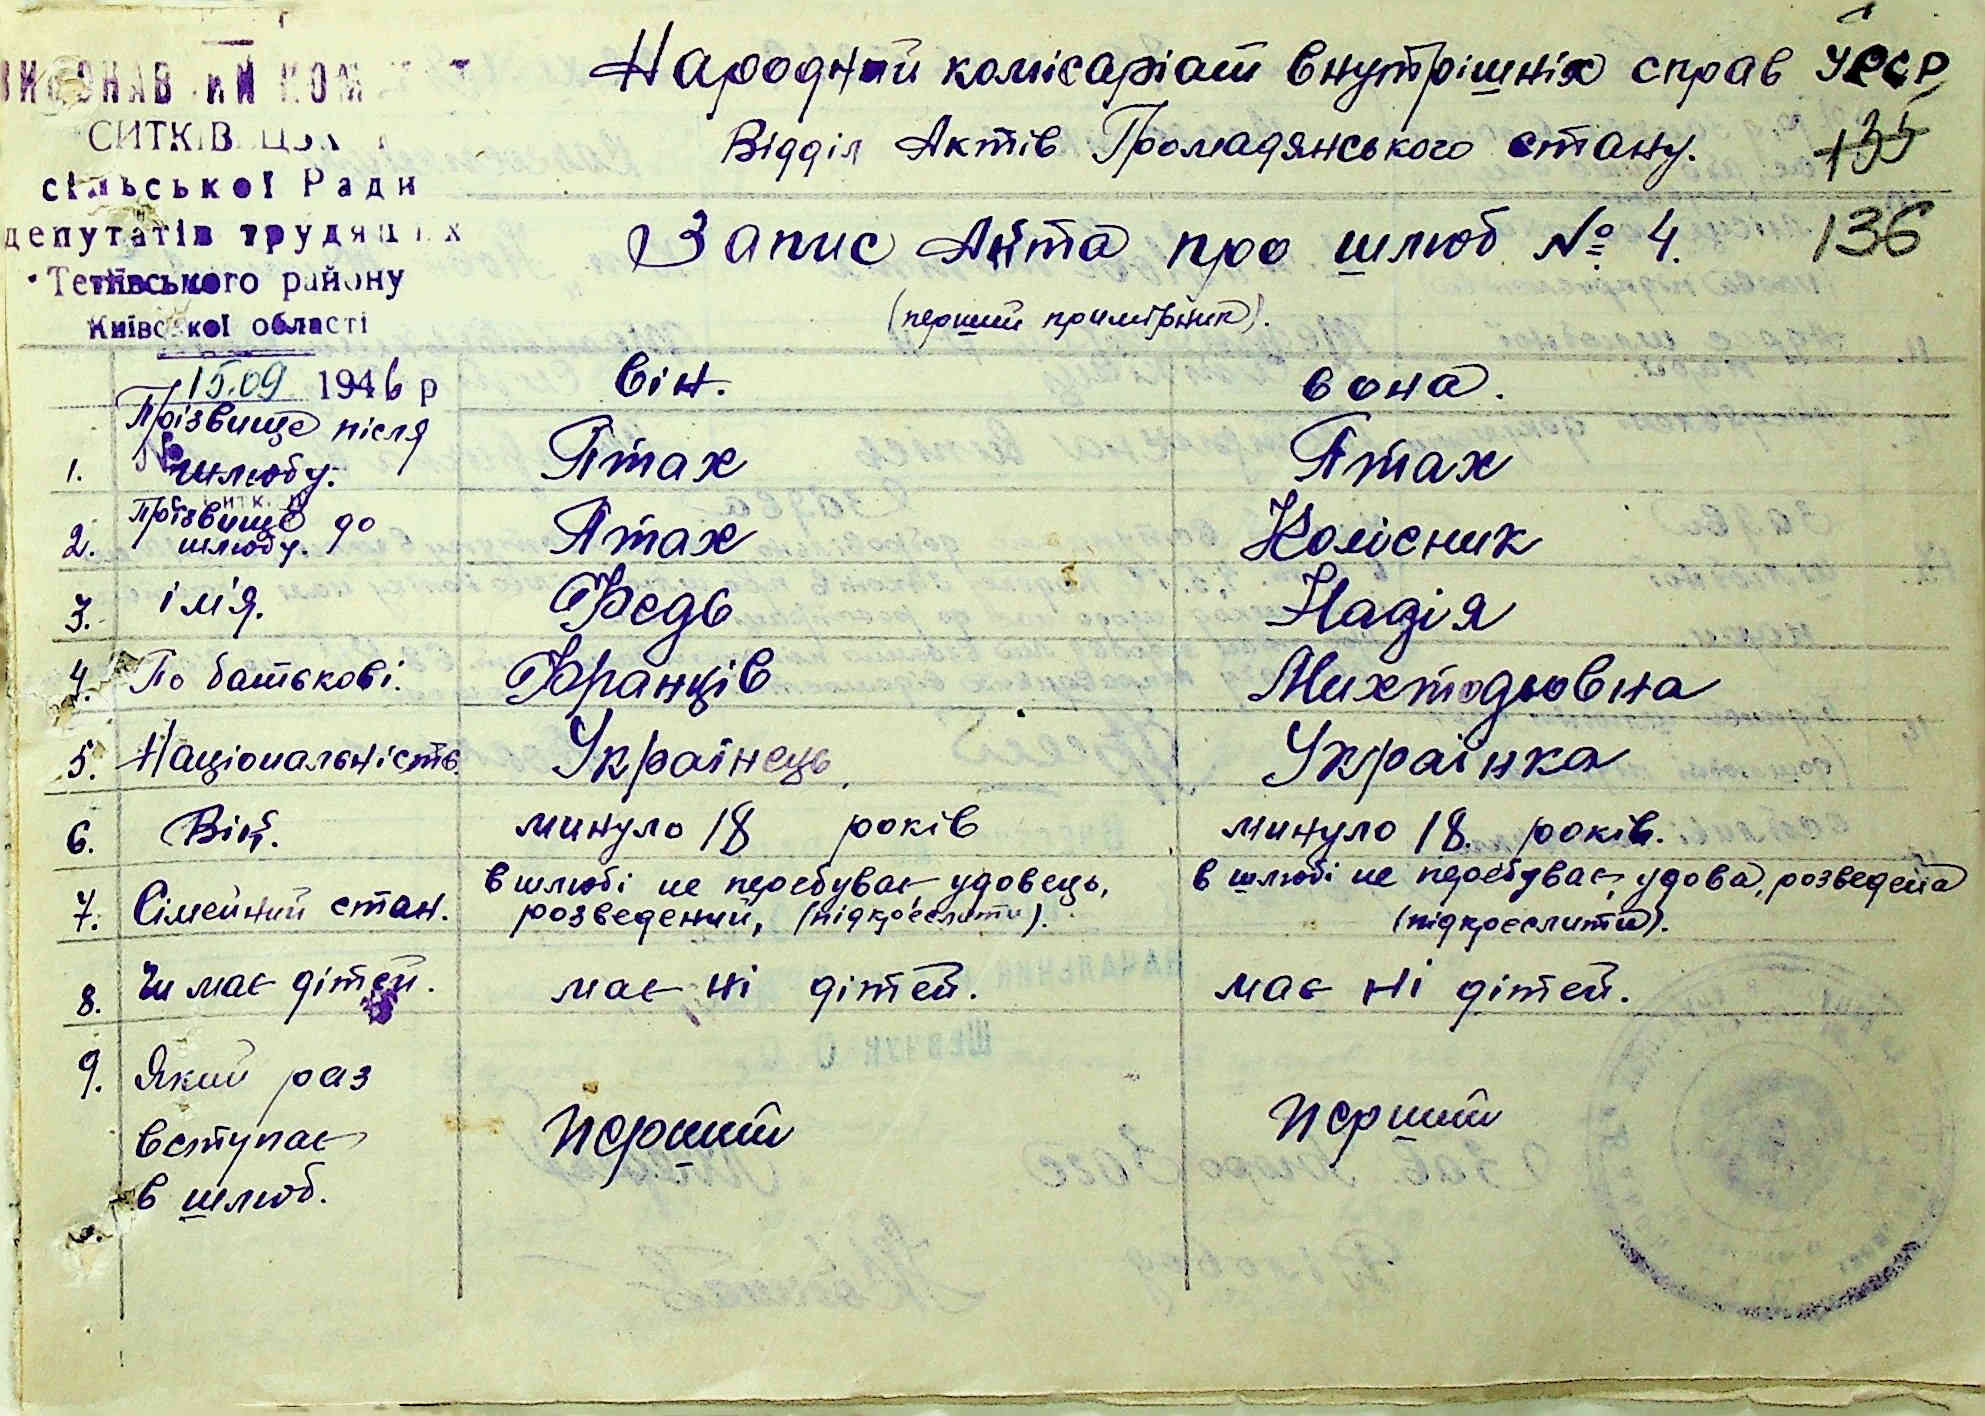 Народний комісаріат внутрішніх справ УРСР
Відділ Актів Громадянського стану.
135
Запис Акта про шлюб № 4.
136
(перший примірник).
сільської Ради
депутатів трудящих
Тетіївського району
Київської області
15.09 1946 р
він.
вона.
1. Прізвище після шлюбу.
Птах
Птах
2. Прізвище до шлюбу.
Птах
Колісник
3. ім'я.
Федь
Надія
4. По батькові.
Франців
Михтодювна
5. Національність.
Українець
Українка
6. Вік.
минуло 18 років
минуло 18 років.
7. Сімейний стан.
в шлюбі не перебуває, удовець,
розведений, (підкреслити).
в шлюбі не перебуває, удова, розведена
(підкреслити).
8. Чи має дітей.
має ні дітей.
має ні дітей.
9. Який раз
вступає
в шлюб.
перший
перший